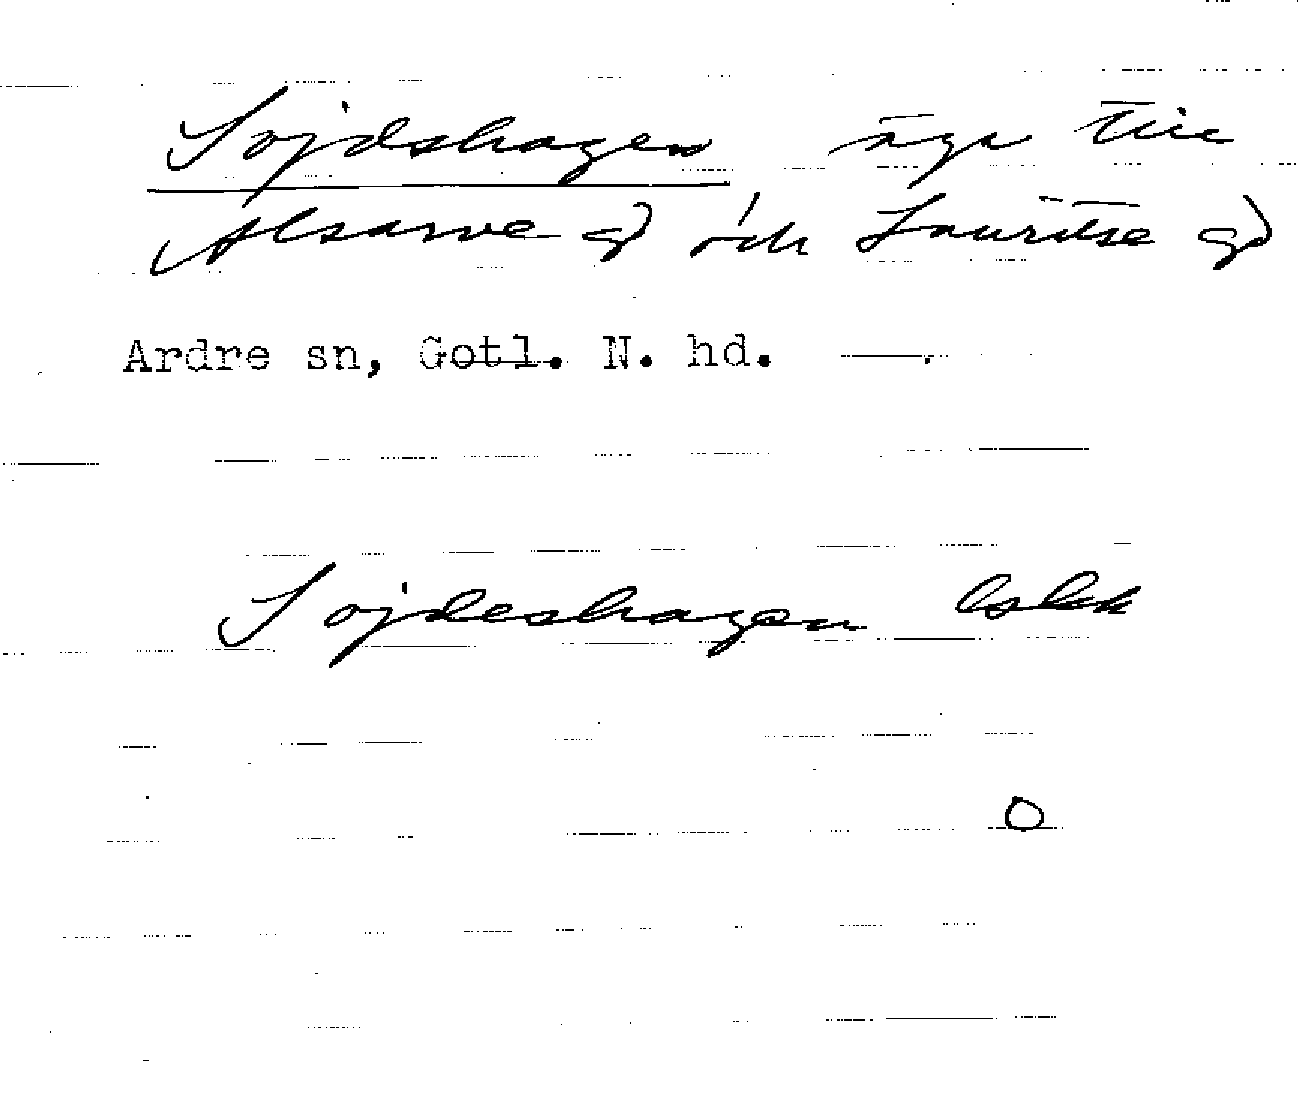 Sojdshagen äga till
Alsarve gd och Lauritse gd
Ardre sn, Gotl. N. hd.
Sojdeshagen